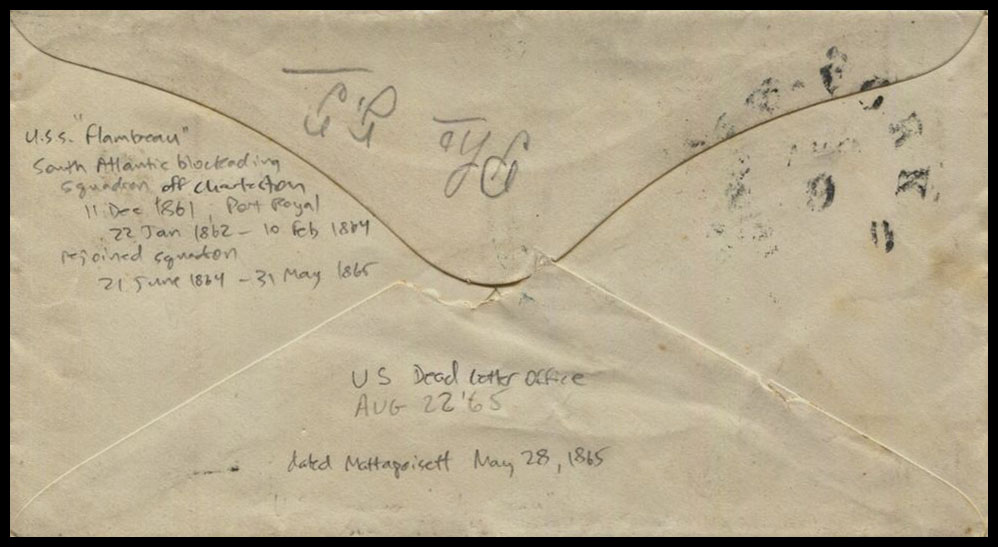 U.S.S. "Flambeau"
South Atlantic blockading
squadron off Charleston
11 Dec 1861, Port Royal
22 Jan 1862 - 10 Feb 1864
rejoined squadron
21 June 1864 - 31 May 1865
US Dead Letter Office
AUG 22 '65
dated Mattapoisett May 28, 1865